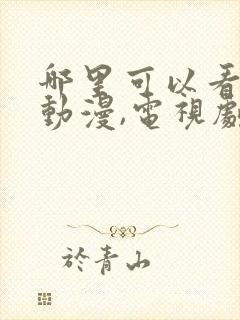 哪里可以看
動漫,電視劇
於青山